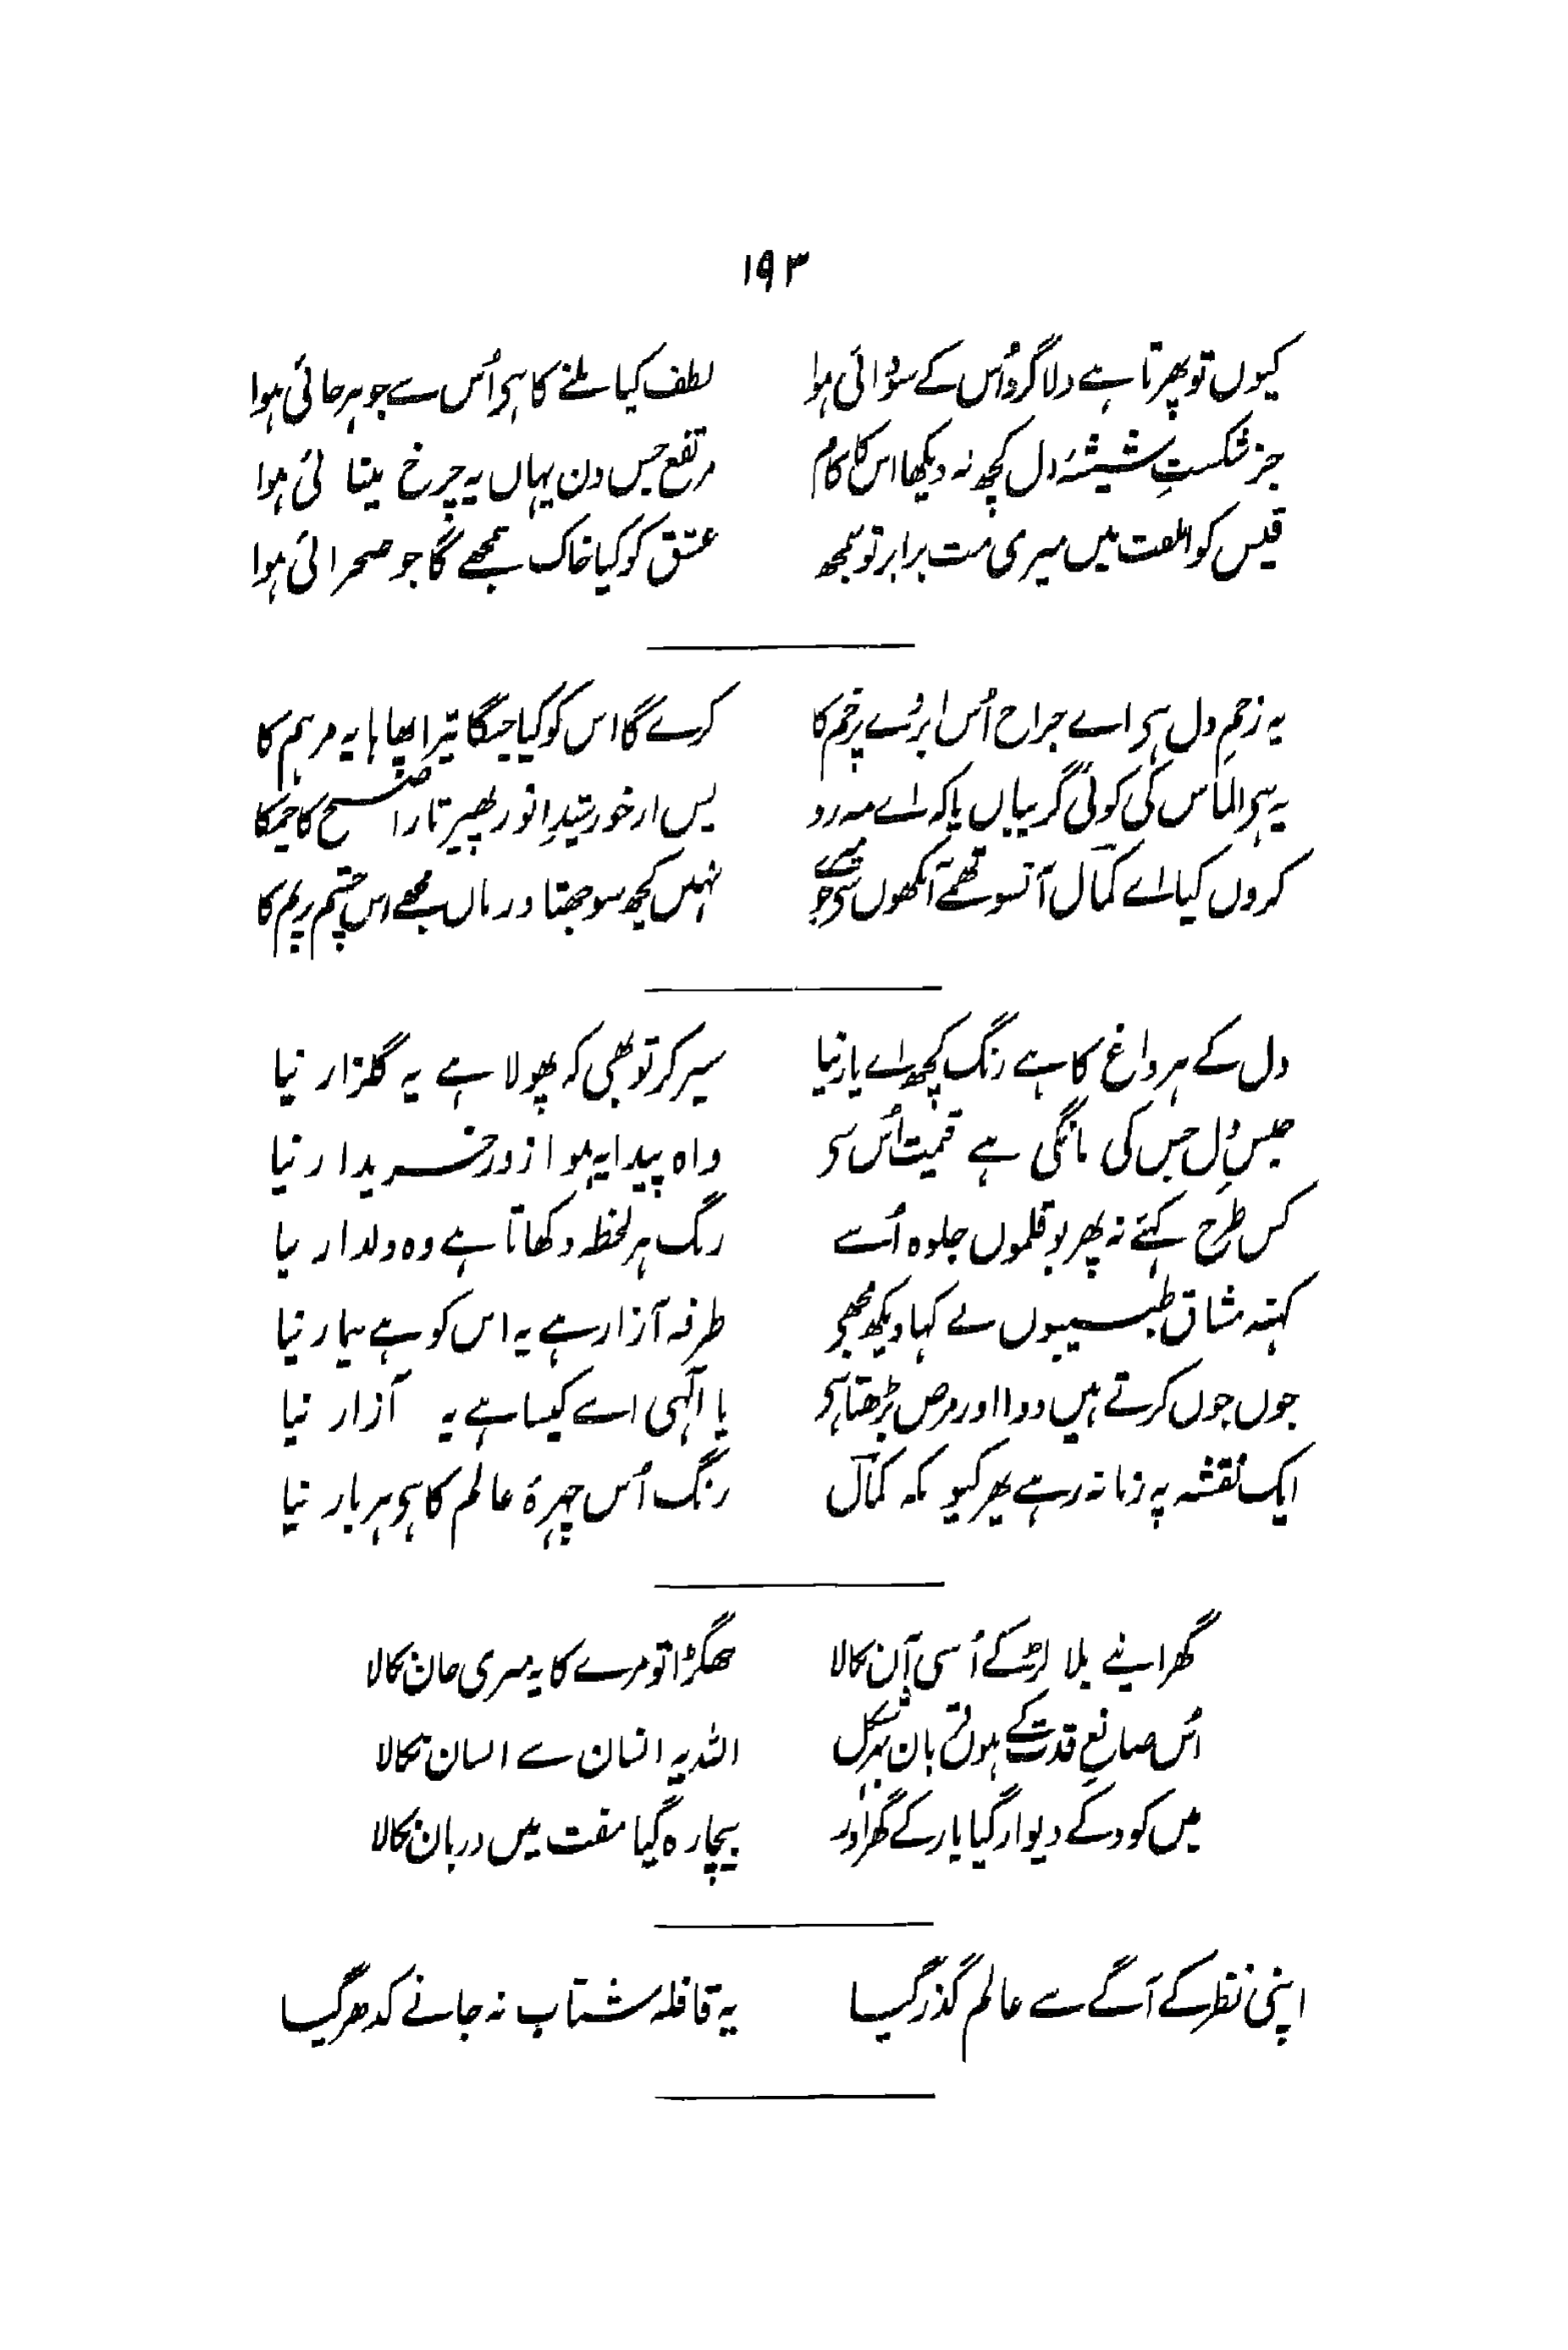 ۱۹۳
کیوں تو پھرتا ہے دلا گرد اُس کے سودائی ہوا لطف کیا ملنے کا ہی اُس سے جو ہرجائی ہوا
جز شکستِ شیشۂ دل کچھ نہ دیکھا اس کا کام مرتفع جس دن یہاں یہ چرخ مینائی ہوا
قیس کو الفت میں میری مت برابر تو سمجھ عشق کو کیا خاک سمجھے گا جو صحرائی ہوا
یہ زخمِ دل ہی اے جراح اُس ابروے پرخم کا کرے گا اس کو کیا چنگا تیرا پھاہا یہ مرہم کا
یہ ہی الماس کی کوئی گریباں یا کہ اے مہ رو پس از خورشیدِ انور پھیر تارا صبح کا چمکا
کروں کیا اے کمال آنسو تھمے آنکھوں سے نہیں کچھ سوجھتا درماں مجھے اس چشم پرنم کا
دل کے ہر داغ کا ہے رنگ کچھ اے یار نیا سیر کر تو بھی کہ پھولا ہے یہ گلزار نیا
جنسِ دل جس کی مانگی ہے قیمت اُس سی واہ پیدا یہ ہوا زور خریدار نیا
کس طرح کہئے نہ پھر بوقلموں جلوہ اُسے رنگ ہر لحظہ دکھاتا ہے وہ دلدار نیا
کہنہ مشاق طبیبوں نے کہا دیکھ مجھی طرفہ آزار ہے یہ اس کو ہے بیمار نیا
جوں جوں کرتے ہیں دوا اور مرض بڑھتا ہی یا الٰہی اے کیسا ہے یہ آزار نیا
ایک نقشہ پہ زمانہ رہے پھر کیونکہ کمال رنگ اُس چہرۂ عالم کا ہی ہر بار نیا
گھر اپنے بلا لڑکے اُسی آن نکالا جھگڑا تو مرے کا یہ مری جان نکالا
اُس صانعِ قدرت کے ہوں قربان بہر شکل اللہ یہ انسان سے انسان نکالا
میں کود کے دیوار گیا یار کے گھر اور بیچارہ گیا مفت میں دربان نکالا
اپنی نظر کے آگے سے عالم گذر گیا یہ قافلہ شتاب نہ جانے کدھر گیا